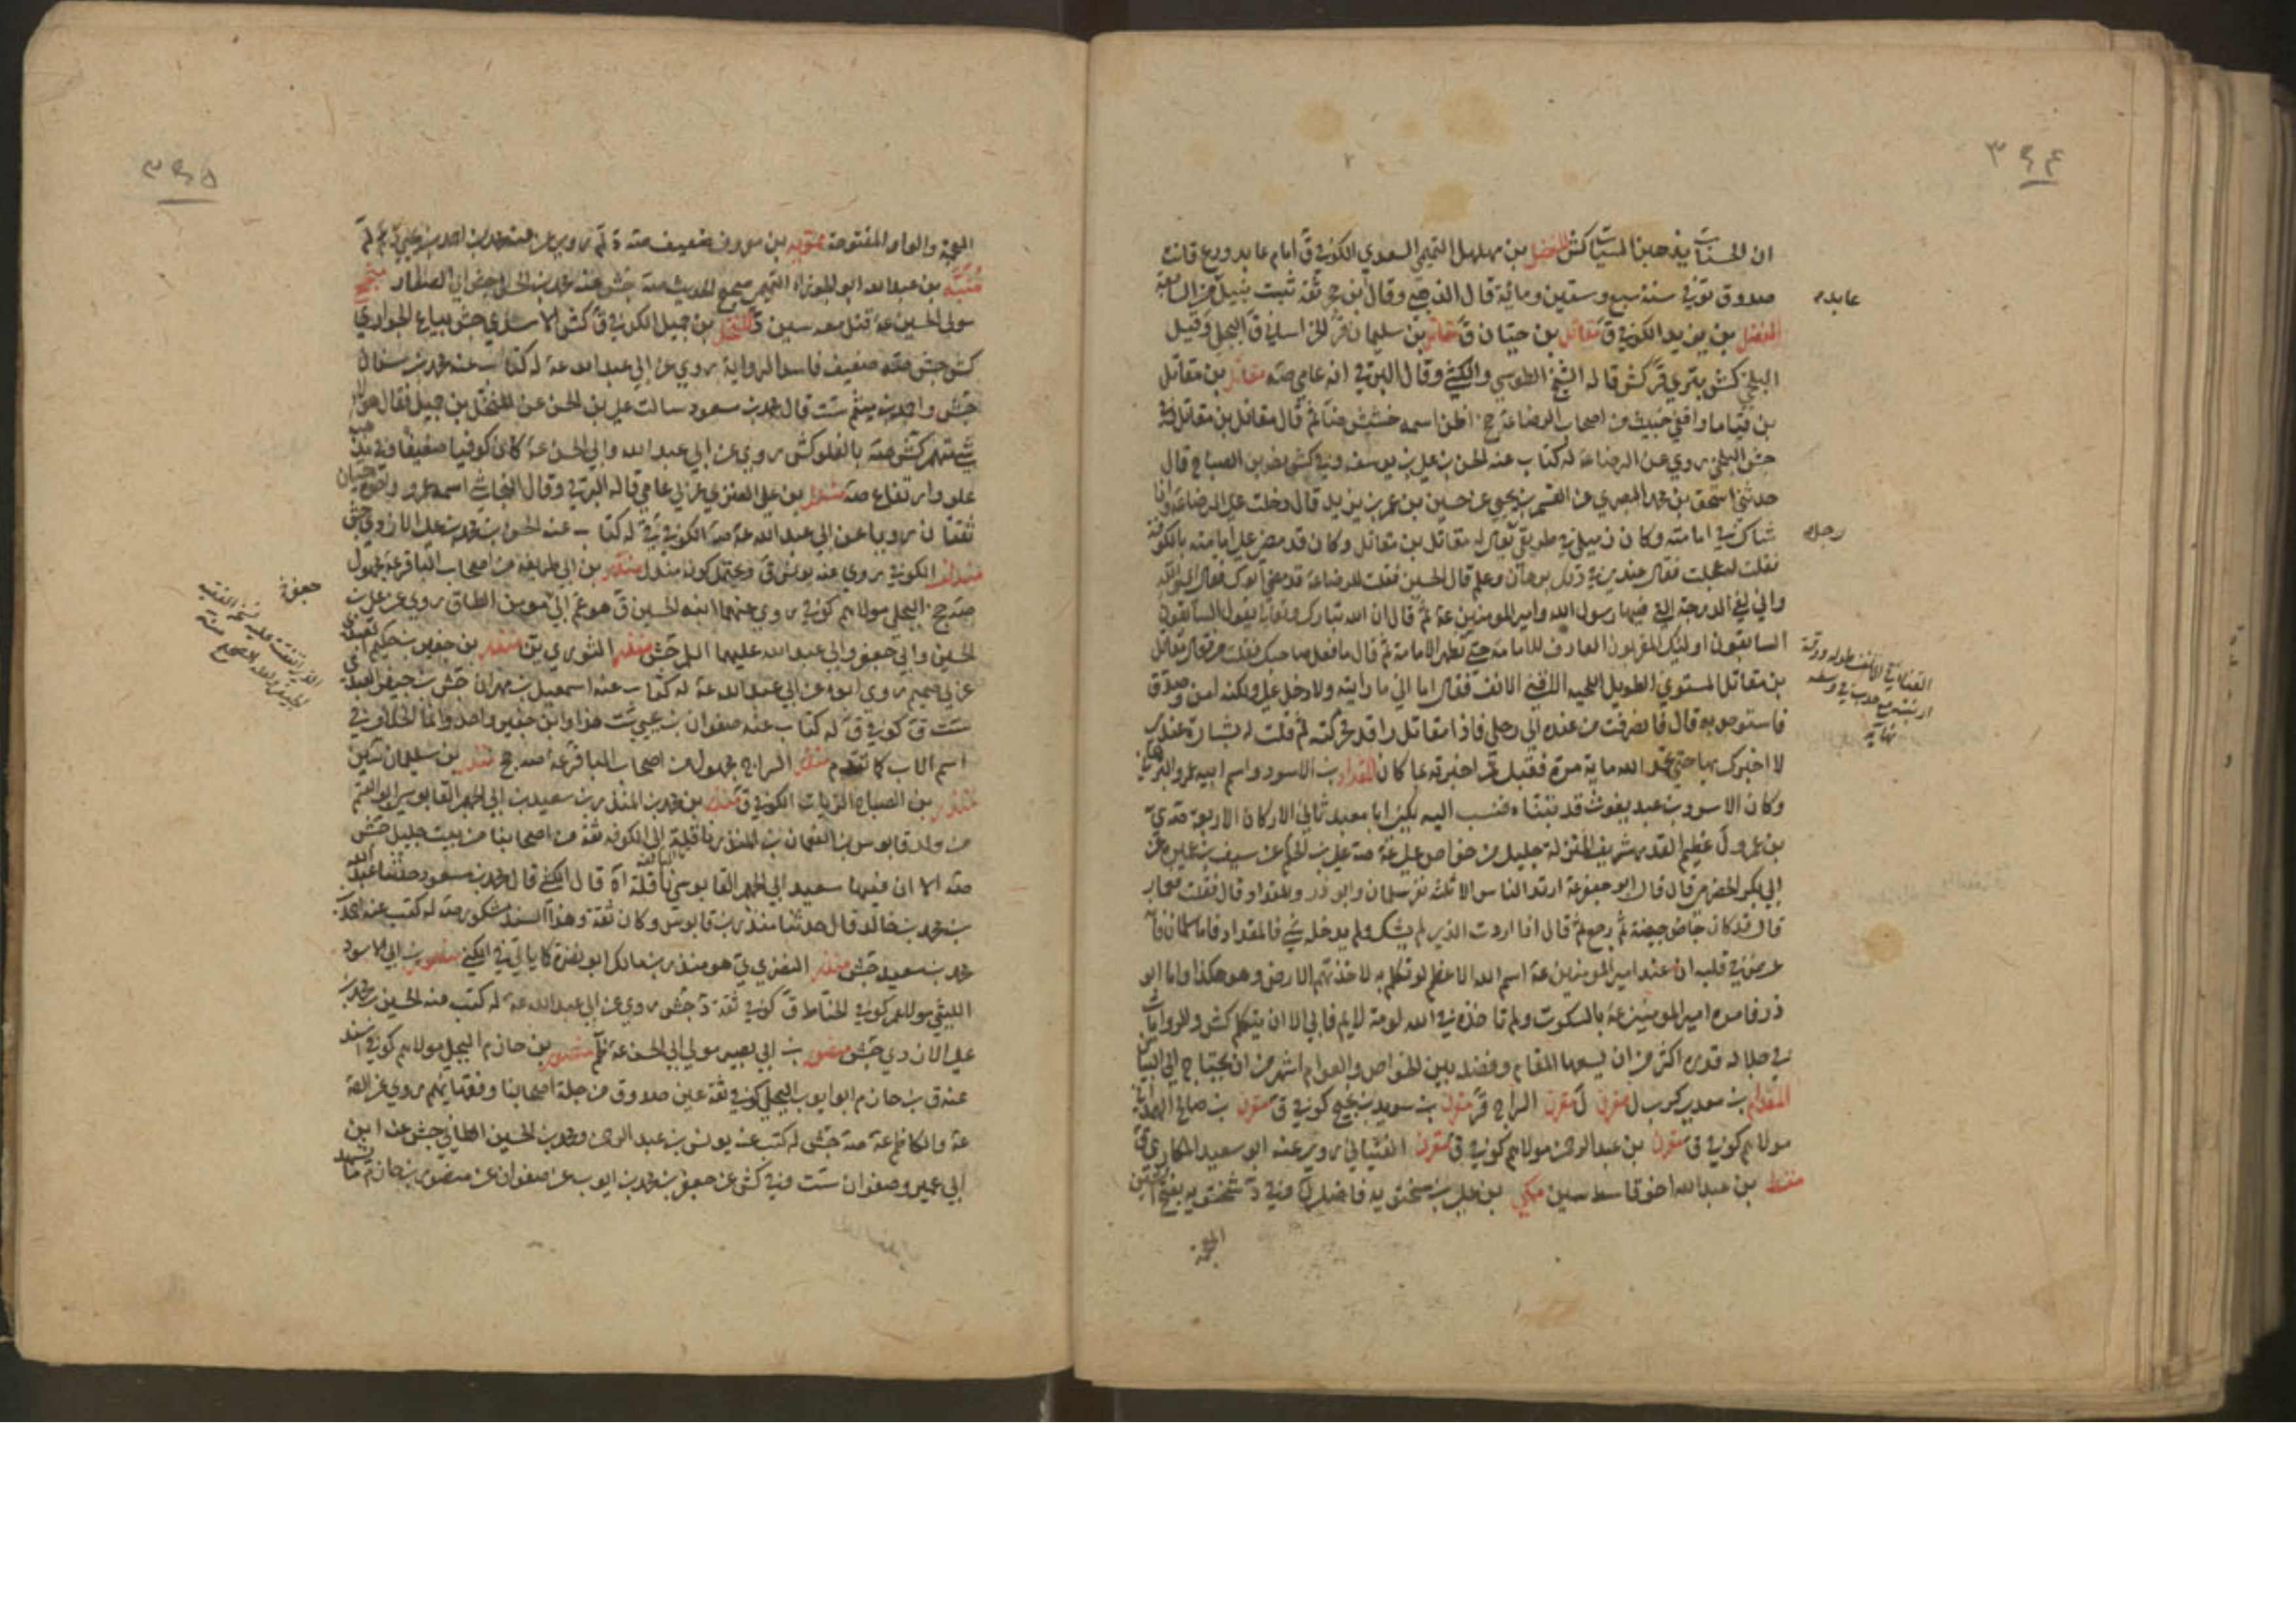 ٣٩٤
ان الحسنات يذهبن السيئات كش المفضل بن مهلهل التميمي السعدي الكوفي ق امام عابد ورع قانت
صدوق توفي سنة سبع وستين ومائة قال الذهبي وقال ابن حجر ثقة ثبت نبيل من السابعة
عابد
المفضل بن يزيد الكوفي ق مقاتل بن حيان ق مقاتل بن سليمان قر الخراساني ق البجلي وقيل
البلخي كش بتري قر كش قاله الشيخ الطوسي والكشي وقال البرقي انه عامي صه مقاتل بن مقاتل
بن قياما واقفي خبيث من اصحاب الرضا عة ج اظن اسمه خشيش ضا ثم قال مقاتل بن مقاتل
جش البلخي روى عن الرضا عة له كتاب عنه الحسن بن علي بن يوسف وفي كش نصر بن الصباح قال
حدثني اسحق بن محمد البصري عن القسم بن يحيى عن حسين بن عمر بن يزيد قال دخلت على الرضا عة وانا
شاك في امامته وكان زميلي في طريقي يقال له مقاتل بن مقاتل وكان قد مضى على امامته بالكوفة
رجل
فقلت له عجلت فقال عندي في ذلك برهان وعلم قال الحسين فقلت للرضا عة قد مضى ابوك فقال اي والله
واني لفي الدرجة التي فيها رسول الله وامير المومنين عة ثم قال ان الله تبارك وتعالى يقول السابقون
السابقون اولئك المقربون العارف للامامة حتى تظهر الامامة ثم قال ما فعل صاحبك فقلت من فقال مقاتل
بن مقاتل المستوي الطويل اللحية الاقنى الانف فقال اما اني ما رايته ولا دخل علي ولكنه امن وصدق
القنا في الانف طوله ورقة
ارنبته مع حدب في وسطه
نهاية
فاستوص به قال فانصرفت من عنده الى رحلي فاذا مقاتل راقد فحركته ثم قلت له بشارة عندي
لا اخبرك بها حتى تحمد الله ماية مرة ففعل ثم اخبرته بما كان المقداد بن الاسود واسم ابيه عمرو البهراني
وكان الاسود بن عبد يغوث قد تبناه فنسب اليه يكنى ابا معبد ثاني الاركان الاربعة صه ي
بن عمرو ل عظيم القدر شريف المنزلة جليل من خواص علي عة صه علي بن الحكم عن سيف بن عميرة عن
ابي بكر الحضرمي قال قال ابو جعفر عة ارتد الناس الا ثلثة نفر سلمان وابو ذر والمقداد قال فقلت فعمار
قال قد كان جاض جيضة ثم رجع ثم قال ان اردت الذي لم يشك ولم يدخله شي فالمقداد فاما سلمان فانه
عرض في قلبه ان عند امير المومنين عة اسم الله الاعظم لو تكلم به لاخذتهم الارض وهو هكذا واما ابو
ذر فامره امير المومنين عة بالسكوت ولم تاخذه في الله لومة لايم فابى الا ان يتكلم كش والروايات
في جلالة قدره اكثر من ان يسعها المقام وفضله بين الخواص والعوام اشهر من ان يحتاج الى البيان
المقدام بن معدي كرب ل مقرن ل مقرن السراج قر مقرن بن سويد بن نجيح كوفي ق مقرن بن صالح الهمداني
مولاهم كوفي ق مقرن بن عبد الرحمن مولاهم كوفي ق مقرن الفتياني روى عنه ابو سعيد المكاري ق
مقسط بن عبد الله اخو قاسط سين مكي بن علي بن سختويه فاضل لم وفي د شختويه بفتح الشين
المعجمة
٣٩٥
المعجمة والواو المفتوحة ممتويه بن معروف ضعيف صه د لم روى عنه محمد بن احمد بن يحيى
منبه بن عبد الله ابو الجوزاء التميمي صحيح الحديث صه جش عنه محمد بن الحسن الصفار منجح
مولى الحسين عة قتل معه سين د المنخل بن جميل الكوفي ق كش الاسدي جش بياع الجواري
كش جش صه ضعيف فاسد الرواية روى عن ابي عبد الله عة له كتاب عنه محمد بن سنان
جش واحمد بن ميثم ست قال محمد بن مسعود سالت علي بن الحسن عن المنخل بن جميل فقال هو لا
شي متهم كش صه بالغلو كش روى عن ابي عبد الله وابي الحسن عة كان كوفيا ضعيفا وفي مذهبه
غلو وارتفاع صه مندل بن علي العنزي عربي عامي قاله البرقي وقال النجاشي اسمه عمرو واخوه حيان
ثقتان رويا عن ابي عبد الله عة صه الكوفي ق له كتاب عنه الحسن بن محمد بن علي الازدي جش
الكوفي روى عنه يونس ق ويحتمل كونه مندل منذر بن ابي طريفة من اصحاب الباقر عة مجهول
صه ج البجلي مولاهم كوفي روى عنهما ابنه الحسين ق هو عم ابي مومن الطاق روى عن علي بن
الحسين وابي جعفر وابي عبد الله عليهما السلم جش منذر الثوري ين منذر بن جفير بن حكيم العبدي
جعفر
عربي صميم روى ابوه عن ابي عبد الله عة له كتاب عنه اسمعيل بن مهران جش بن جيفر العبدي
ست ق كوفي ق له كتاب عنه صفوان بن يحيى ست هذا وابن جفير واحد وانما الخلاف في
اسم الاب كما تقدم منذر السراج مجهول من اصحاب الباقر عة صه ج منذر بن سليمان سين
منذر بن الصباح الزيات الكوفي ق منذر بن محمد بن المنذر بن سعيد بن ابي الجهم القابوسي ابو القسم
من ولد قابوس بن النعمان بن المنذر ناقلة الى الكوفة ثقة من اصحابنا من بيت جليل جش
صه الا ان فيها سعيد ابي الجهم القابوسي ناقلة اه قال الكشي قال محمد بن مسعود حدثنا عبد الله
بن محمد بن خالد قال حدثنا منذر بن قابوس وكان ثقة وهذا السند مشكور صه له كتب عنه احمد بن
محمد بن سعيد جش منذر النضري ي هو منذر بن مالك ابو نضرة كما ياتي في الكنى منصور بن ابي الاسود
الليثي مولاهم كوفي الخياط ق كوفي ثقة د جش روى عن ابي عبد الله عة له كتب عنه الحسين بن محمد بن
علي الازدي جش منصور بن ابي بصير مولى ابي الحسن عة ظم منصور بن حازم البجلي مولاهم كوفي اسند
عنه ق بن حازم ابو ايوب البجلي كوفي ثقة عين صدوق من جلة اصحابنا وفقهايهم روى عن الصه
عة والكاظم عة صه جش له كتب عنه يونس بن عبد الرحمن ومحمد بن الحسين الطائي جش عنه ابن
ابي عمير وصفوان ست وفي كش عن جعفر بن محمد بن ايوب عن صفوان عن منصور بن حازم